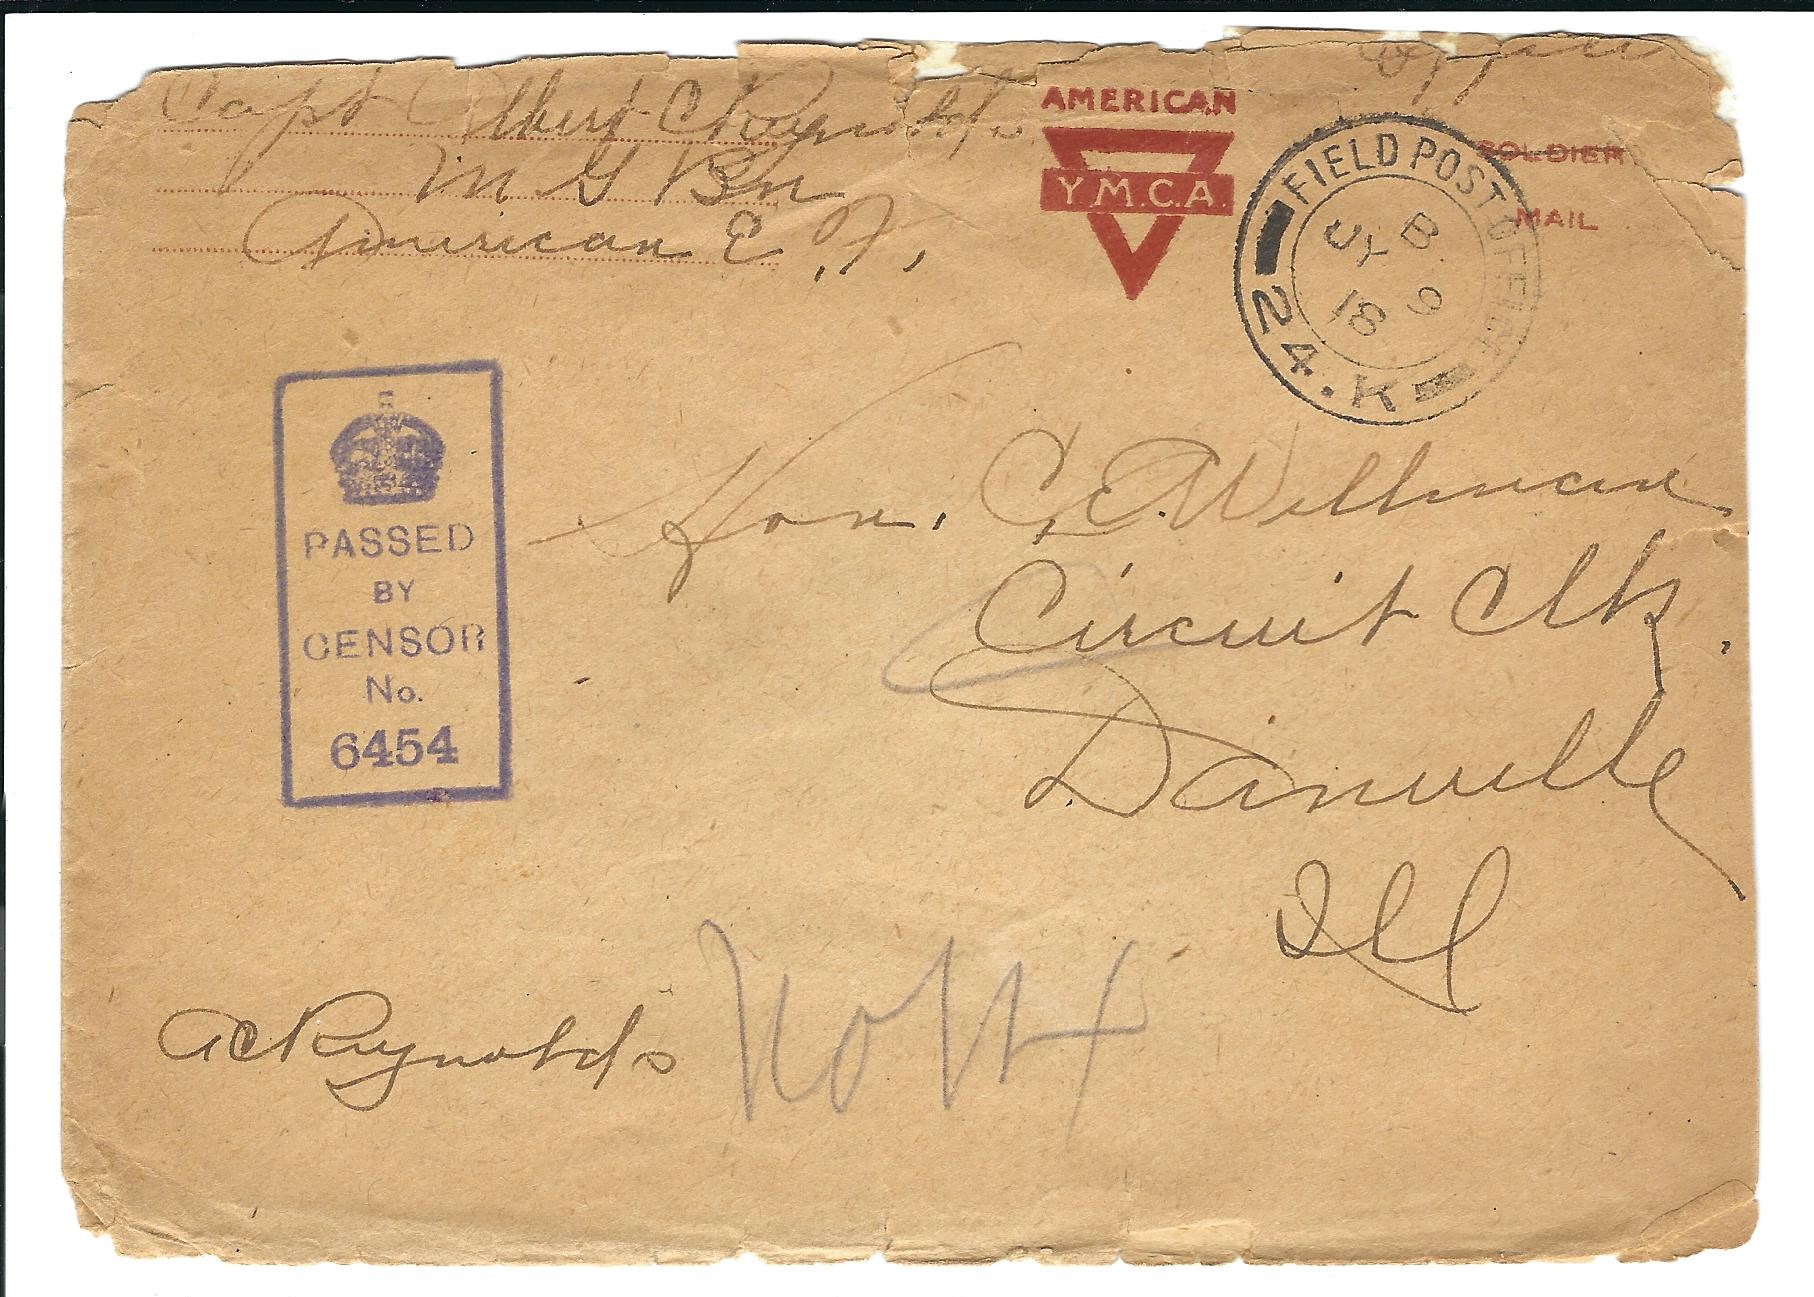 Capt Albert C Reynolds
M G Bn
American E. F.
AMERICAN
Y.M.C.A.
SOLDIER
MAIL
FIELD POST OFFICE
24.K
B
JY 9
18
PASSED
BY
CENSOR
No.
6454
Hon. C. E. Wellman
Circuit Clk.
Danville
Ill
A C Reynolds